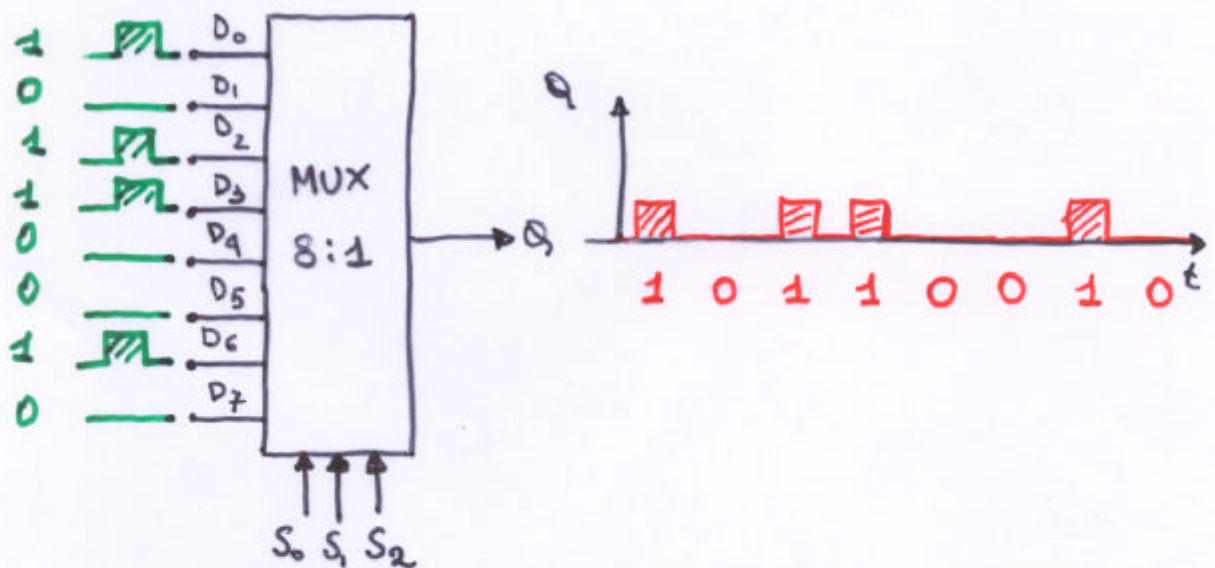 1 D0
0 D1
1 D2
1 D3
0 D4
0 D5
1 D6
0 D7
MUX
8:1
S0 S1 S2
Q
Q
1 0 1 1 0 0 1 0
t